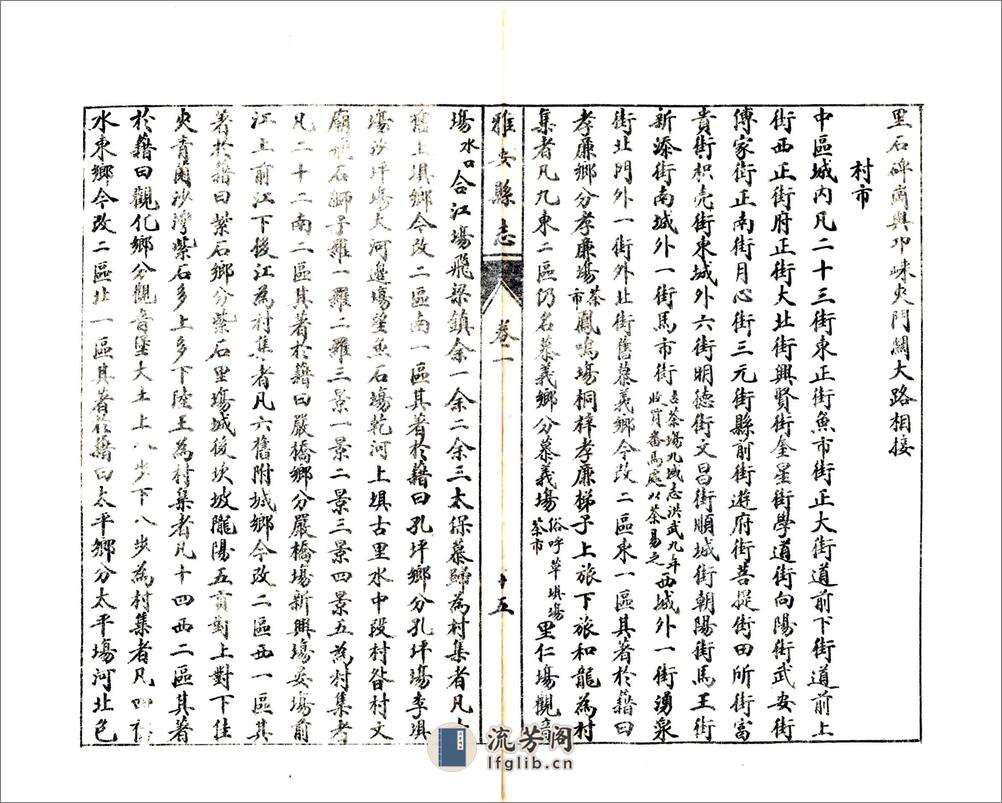 里石碑崗與邛崍夾門關大路相接
村市
中區城內凡二十三街東正街魚市街正大街道前下街道前上
街西正街府正街大北街興賢街奎星街學道街向陽街武安街
傅家街正南街月心街三元街縣前街遊府街菩提街田所街富
貴街枳壳街東城外六街明德街文昌街順城街朝陽街馬王街
新添街南城外一街馬市街古茶場九域志洪武九年收買番馬處以茶易之西城外一街湧泉
街北門外一街外北街舊慕義鄉今改二區東一區其著於籍曰
孝廉鄉分孝廉場茶市鳳鳴場桐梓孝廉梯子上旅下旅和龍為村
集者凡九東二區仍名慕義鄉分慕義場俗呼草垻場茶市里仁場觀音
雅安縣志
卷一
十五
場水口合江場飛梁鎮余一余二余三太保慕歸為村集者凡十
舊上垻鄉今改二區南一區其著於籍曰孔坪鄉分孔坪場李垻
場沙坪場大河邊場望魚石場乾河上垻古里水中段村砦村文
廟晚石獅子羅一羅二羅三景一景二景三景四景五為村集者
凡二十二南二區其著於籍曰嚴橋鄉分嚴橋場新興場晏場前
江上前江下後江為村集者凡六舊附城鄉今改二區西一區其
著於籍曰紫石鄉分紫石里場城後坎坡隴陽五貢對上對下佳
夾青圍沙灣紫石多上多下陸王為村集者凡十四西二區其著
於籍曰觀化鄉分觀音堡大土上八步下八步為村集者凡四舊
水東鄉今改二區北一區其著於籍曰太平鄉分太平場河北色
流芳阁
lfglib.cn